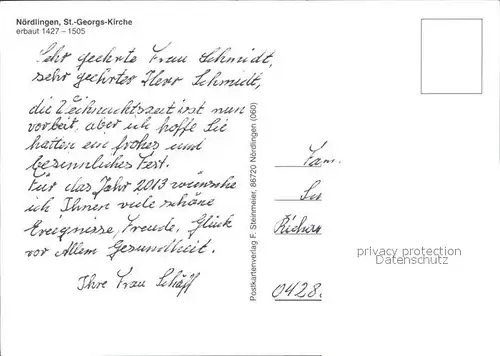 Nördlingen, St.-Georgs-Kirche
erbaut 1427 – 1505
Sehr geehrte Frau Schmidt,
sehr geehrter Herr Schmidt,
die Weihnachtszeit ist nun
vorbei, aber ich hoffe Sie
hatten ein frohes und
besinnliches Fest.
Für das Jahr 2013 wünsche
ich Ihnen viele schöne
Ereignisse, Freude, Glück
vor Allem Gesundheit.
Ihre Frau Schäff
Postkartenverlag F. Steinmeier, 86720 Nördlingen (060)
Fam.
Richar
0428
privacy protection
Datenschutz